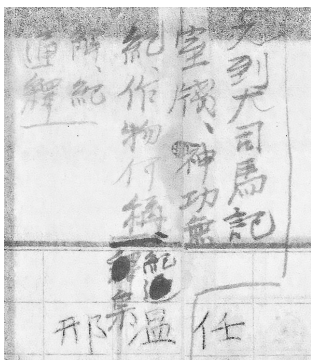 到大司馬記
室牋、神功無
紀、作物何稱
解、紀
釋
任
溫
邢